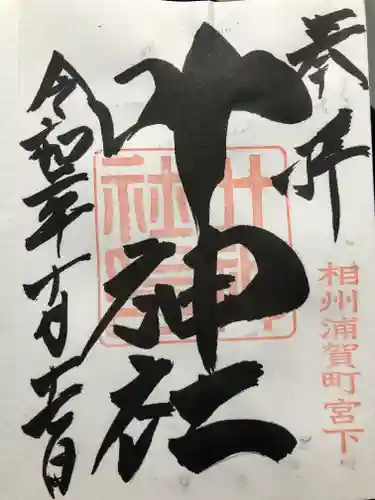 奉拝
相州浦賀町宮下
叶神社
叶神社印
令和年十月日